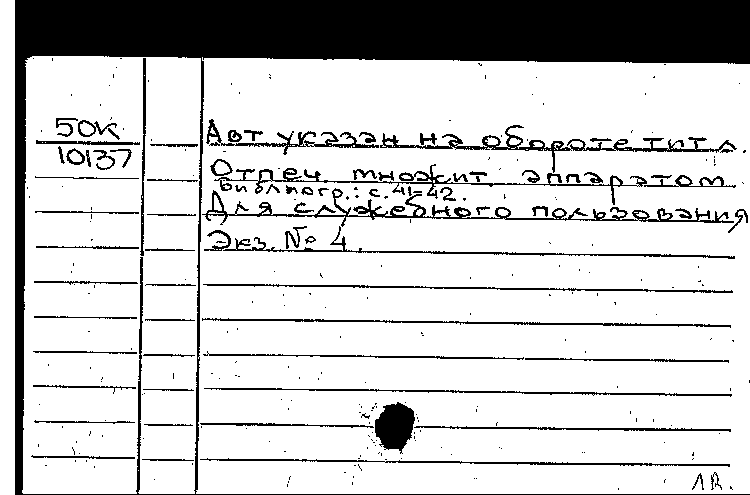 50К
10137
Авт указан на обороте тит л.
Отпеч. множит. аппаратом
Библиогр.: с. 41-42.
Для служебного пользования
Экз. № 4.